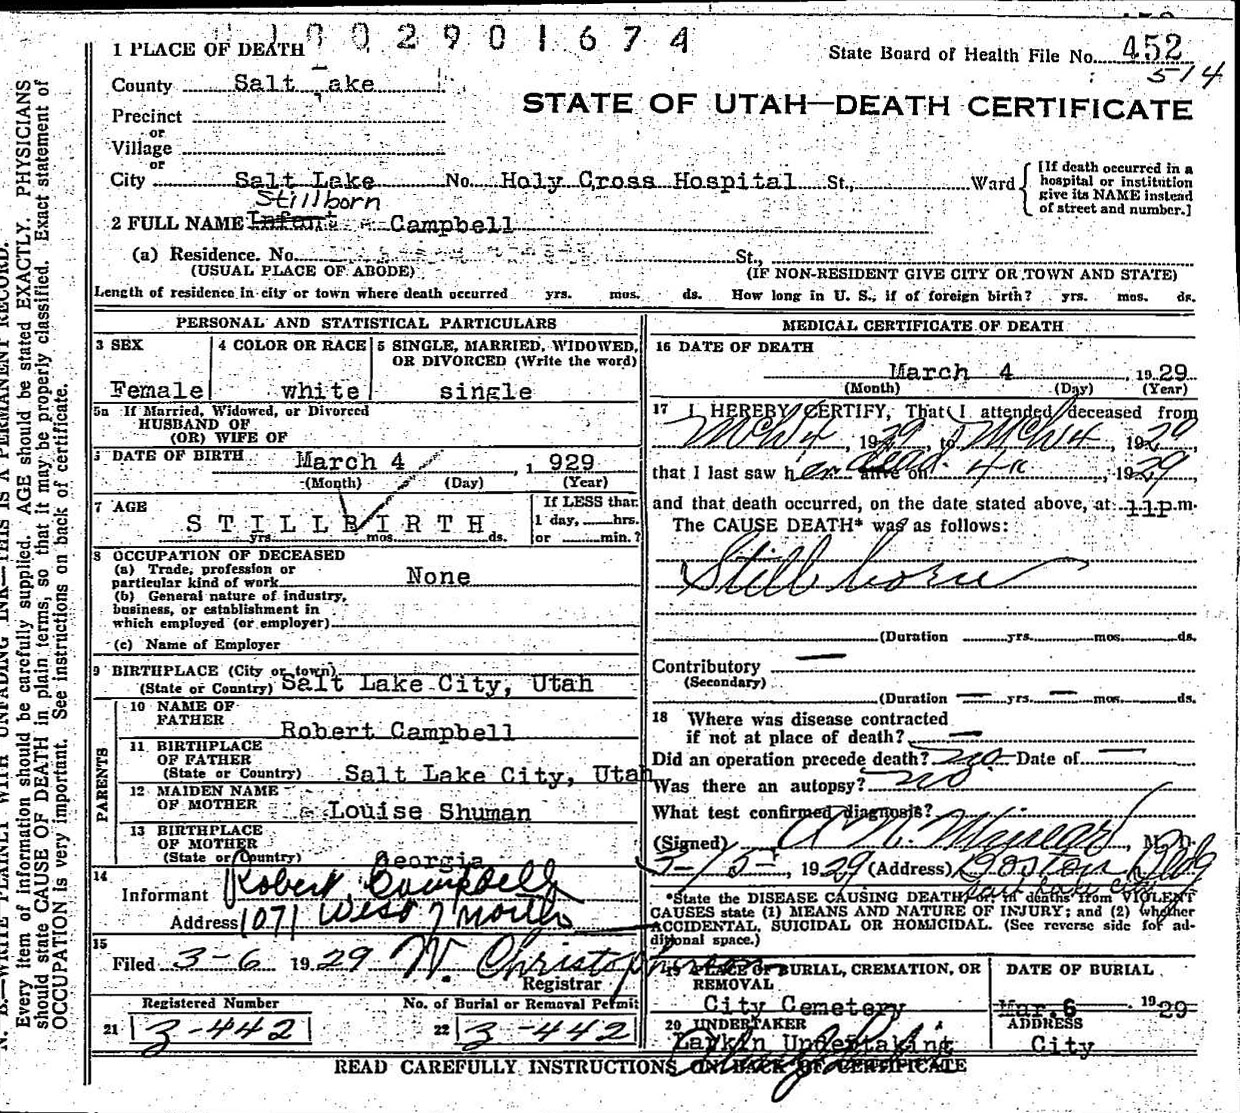 1002901674
1 PLACE OF DEATH
State Board of Health File No. 452
514
County Salt Lake
STATE OF UTAH—DEATH CERTIFICATE
Precinct
or
Village
or
City Salt Lake No. Holy Cross Hospital St., Ward
[If death occurred in a hospital or institution give its NAME instead of street and number.]
Stillborn
2 FULL NAME Infant - Campbell
(a) Residence. No. St.,
(USUAL PLACE OF ABODE) (IF NON-RESIDENT GIVE CITY OR TOWN AND STATE)
Length of residence in city or town where death occurred yrs. mos. ds. How long in U. S., if of foreign birth? yrs. mos. ds.
PERSONAL AND STATISTICAL PARTICULARS
3 SEX
Female
4 COLOR OR RACE
white
5 SINGLE, MARRIED, WIDOWED, OR DIVORCED (Write the word)
single
5a If Married, Widowed, or Divorced
HUSBAND OF
(OR) WIFE OF
DATE OF BIRTH March 4, 1929
(Month) (Day) (Year)
7 AGE
STILLBIRTH
yrs. mos. ds.
If LESS than
1 day, hrs.
or min.?
8 OCCUPATION OF DECEASED
(a) Trade, profession or
particular kind of work None
(b) General nature of industry,
business, or establishment in
which employed (or employer)
(c) Name of Employer
9 BIRTHPLACE (City or town)
(State or Country) Salt Lake City, Utah
PARENTS
10 NAME OF
FATHER
Robert Campbell
11 BIRTHPLACE
OF FATHER
(State or Country) Salt Lake City, Utah
12 MAIDEN NAME
OF MOTHER Louise Shuman
13 BIRTHPLACE
OF MOTHER
(State or Country) Georgia
14
Informant Robert Campbell
Address 1071 West 7 North
15
Filed 3-6 1929 W. Christopherson
Registrar
Registered Number
21 3-442
No. of Burial or Removal Permit
22 3-442
MEDICAL CERTIFICATE OF DEATH
16 DATE OF DEATH
March 4, 1929
(Month) (Day) (Year)
17 I HEREBY CERTIFY, That I attended deceased from
Mch 4, 1929, to Mch 4, 1929
that I last saw her dead alive on 4, 1929,
and that death occurred, on the date stated above, at 11p.m.
The CAUSE DEATH* was as follows:
Stillborn
(Duration yrs. mos. ds.
Contributory —
(Secondary)
(Duration — yrs. — mos. ds.
18 Where was disease contracted
if not at place of death? —
Did an operation precede death? no Date of —
Was there an autopsy? no
What test confirmed diagnosis?
(Signed) M. D.
3-15-, 1929 (Address) Boston Bldg
Salt Lake City
*State the DISEASE CAUSING DEATH, or, in deaths from VIOLENT
CAUSES state (1) MEANS AND NATURE OF INJURY; and (2) whether
ACCIDENTAL, SUICIDAL OR HOMICIDAL. (See reverse side for ad-
ditional space.)
19 PLACE OF BURIAL, CREMATION, OR
REMOVAL
City Cemetery
DATE OF BURIAL
Mar. 6 1929
20 UNDERTAKER
Larkin Undertaking
ADDRESS
City
READ CAREFULLY INSTRUCTIONS ON BACK OF CERTIFICATE
N. B.—WRITE PLAINLY WITH UNFADING INK—THIS IS A PERMANENT RECORD.
Every item of information should be carefully supplied. AGE should be stated EXACTLY. PHYSICIANS
should state CAUSE OF DEATH in plain terms, so that it may be properly classified. Exact statement of
OCCUPATION is very important. See instructions on back of certificate.